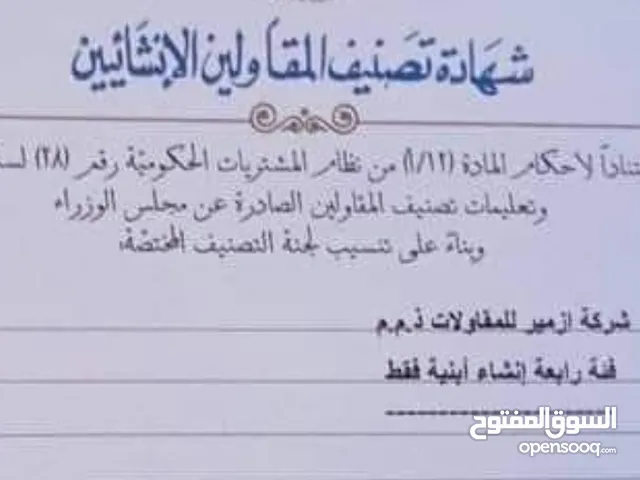 شهادة تصنيف المقاولين الإنشائيين
لأحكام المادة (١٢/أ) من نظام المشتريات الحكومية رقم (٢٨)
وتعليمات تصنيف المقاولين الصادرة عن مجلس الوزراء
وبناءً على تنسيب لجنة التصنيف المختصة،
شركة ازمير للمقاولات ذ.م.م
فئة رابعة إنشاء أبنية فقط
السوق المفتوح
opensooq.com